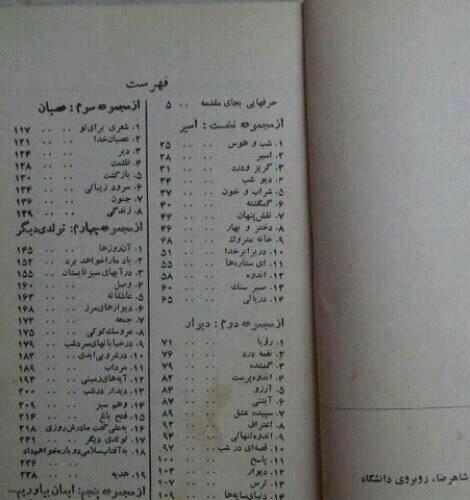 فهرست
حرفهایی بجای مقدمه .. ۵
از مجموعه نخست: اسیر
۱. شب و هوس .. .. ۲۵
۲. اسیر .. .. ۲۸
۳. گریز و درد .. .. ۳۱
۴. دیو شب .. .. ۳۴
۵. شراب و خون .. .. ۳۷
۶. گمگشته .. .. ۴۰
۷. نقش پنهان .. .. ۴۴
۸. دختر و بهار .. .. ۴۶
۹. خانه متروك .. .. ۴۸
۱۰. در برابر خدا .. .. ۵۱
۱۱. ای ستاره‌ها .. .. ۵۵
۱۲. اندوه .. .. ۵۸
۱۳. صبر سنگ .. .. ۶۰
۱۴. دریائی .. .. ۶۵
از مجموعه دوم: دیوار
۱. رؤیا .. .. ۷۱
۲. نغمه درد .. .. ۷۶
۳. گمشده .. .. ۷۹
۴. اندوه‌پرست .. .. ۸۲
۵. آرزو .. .. ۸۴
۶. آبتنی .. .. ۸۷
۷. سپیده عشق .. .. ۸۹
۸. اعتراف .. .. ۹۲
۹. اندوه تنهائی .. .. ۹۴
۱۰. قصه‌ای در شب .. .. ۹۷
۱۱. پاسخ .. .. ۱۰۰
۱۲. دیوار .. .. ۱۰۳
۱۳. ترس .. .. ۱۰۷
۱۴. دنیای سایه‌ها .. .. ۱۰۹
از مجموعه سوم: عصیان
۱. شعری برای تو .. .. ۱۱۷
۲. عصیان خدا .. .. ۱۲۱
۳. دیر .. .. ۱۲۴
۴. ظلمت .. .. ۱۲۸
۵. بازگشت .. .. ۱۳۰
۶. سرود زیبائی .. .. ۱۳۴
۷. جنون .. .. ۱۳۶
۸. زندگی .. .. ۱۳۹
از مجموعه چهارم: تولدی دیگر
۱. آن روزها .. .. ۱۴۵
۲. باد ما را خواهد برد .. ۱۵۲
۳. در آبهای سبز تابستان .. ۱۵۵
۴. وصل .. .. ۱۶۰
۵. عاشقانه .. .. ۱۶۳
۶. دیوارهای مرز .. .. ۱۶۸
۷. جمعه .. .. ۱۷۳
۸. عروسك کوکی .. .. ۱۷۵
۹. در خیابانهای سرد شب .. ۱۷۹
۱۰. در غروبی ابدی .. .. ۱۸۳
۱۱. مرداب .. .. ۱۸۹
۱۲. آیه‌های زمینی .. .. ۱۹۳
۱۳. دیدار در شب .. .. ۲۰۰
۱۴. وهم سبز .. .. ۲۰۹
۱۵. فتح باغ .. .. ۲۱۴
۱۶. به علی گفت مادرش روزی ۲۱۸
۱۷. تولدی دیگر .. .. ۲۳۱
۱۸. به آفتاب سلامی دوباره خواهم داد ۲۳۶
۱۹. هدیه .. .. ۲۳۸
از مجموعه پنجم: ایمان بیاوریم...
شاهرضا، روبروی دانشگاه